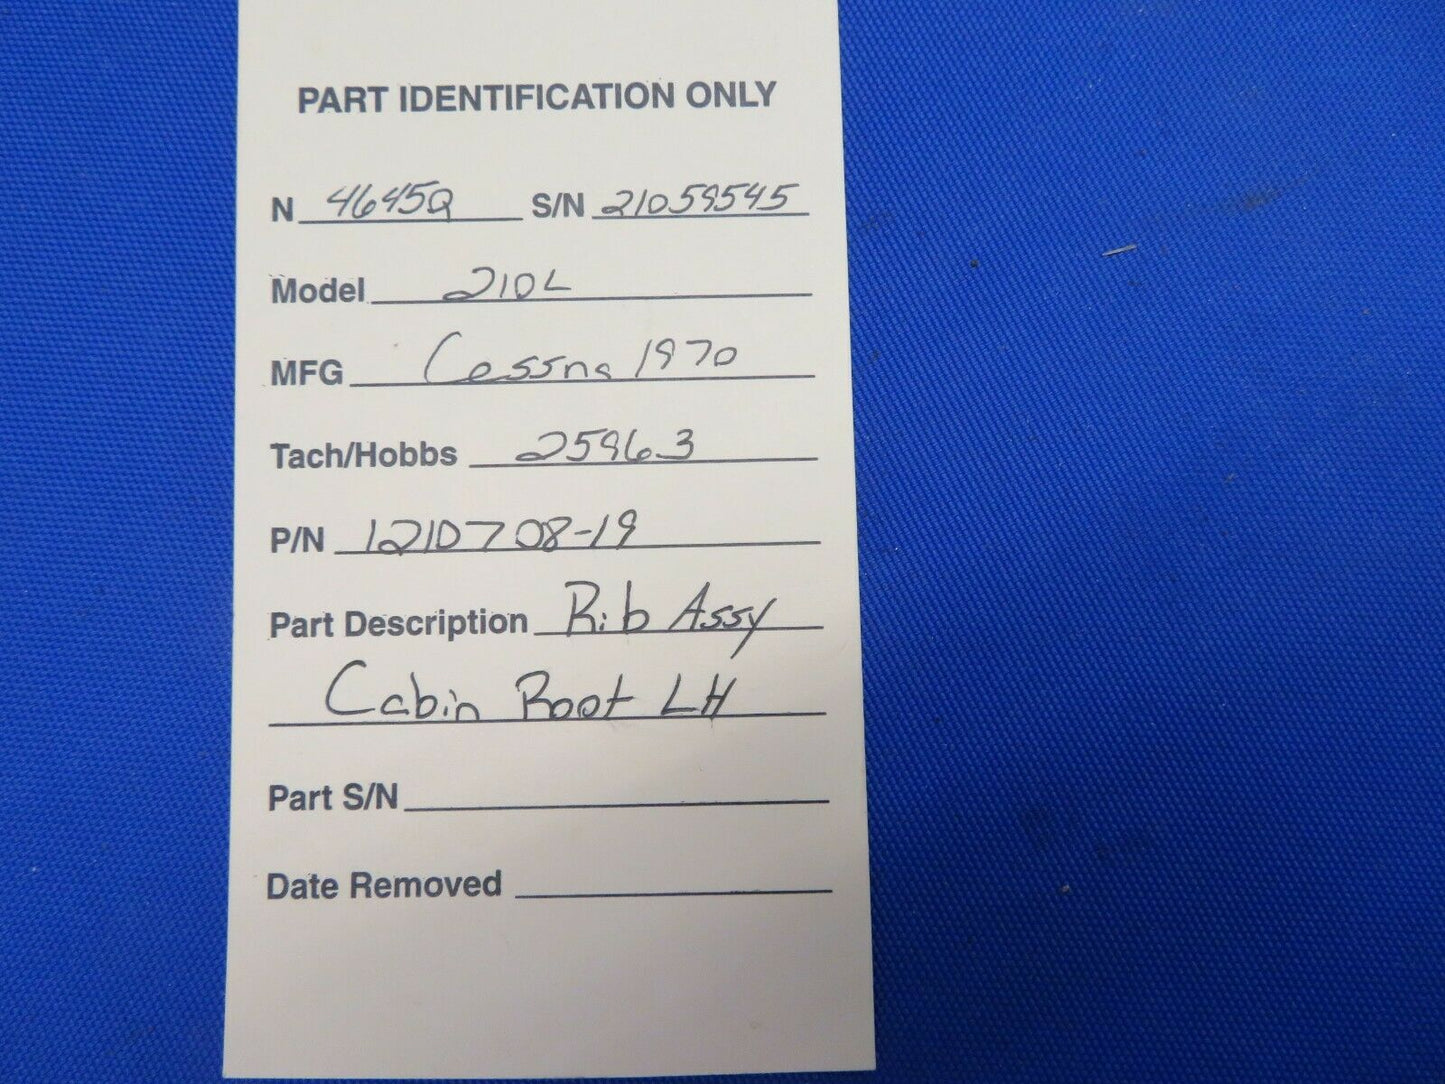 PART IDENTIFICATION ONLY
N 4645Q S/N 21059545
Model 210L
MFG Cessna 1970
Tach/Hobbs 2596.3
P/N 1210708-19
Part Description Rib Assy
Cabin Root LH
Part S/N
Date Removed